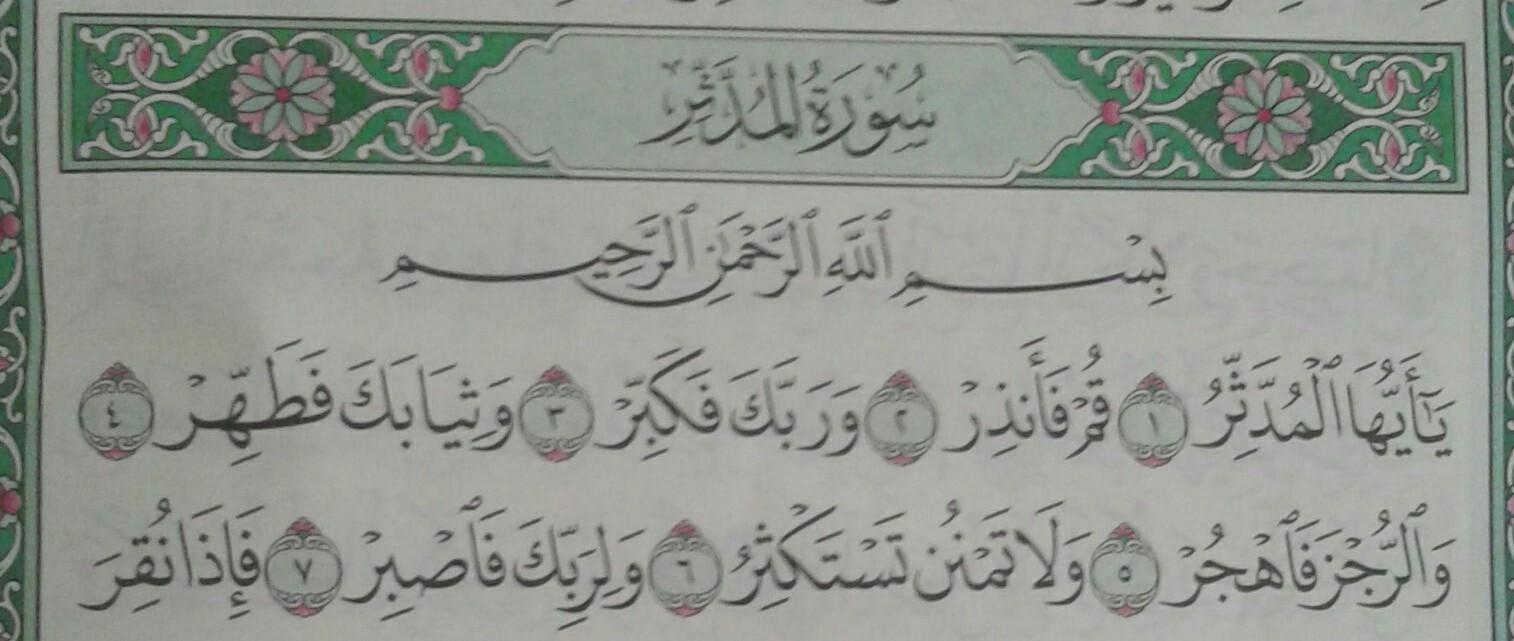 سُورَةُ المُدَّثِّرِ
بِسْمِ ٱللَّهِ ٱلرَّحْمَٰنِ ٱلرَّحِيمِ
يَٰٓأَيُّهَا ٱلْمُدَّثِّرُ ١ قُمْ فَأَنذِرْ ٢ وَرَبَّكَ فَكَبِّرْ ٣ وَثِيَابَكَ فَطَهِّرْ ٤
وَٱلرُّجْزَ فَٱهْجُرْ ٥ وَلَا تَمْنُن تَسْتَكْثِرُ ٦ وَلِرَبِّكَ فَٱصْبِرْ ٧ فَإِذَا نُقِرَ